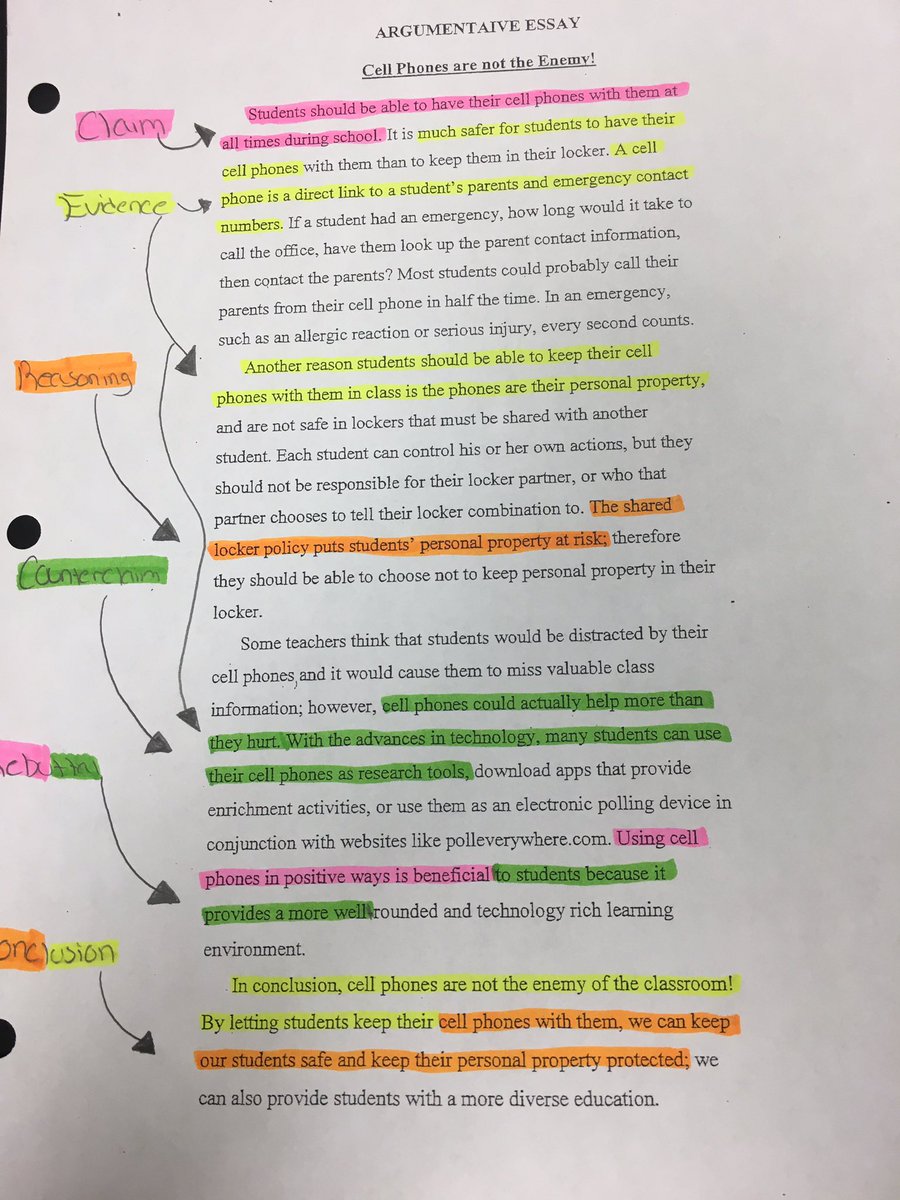 ARGUMENTAIVE ESSAY
Cell Phones are not the Enemy!
Claim
Students should be able to have their cell phones with them at
all times during school. It is much safer for students to have their
cell phones with them than to keep them in their locker. A cell
Evidence
phone is a direct link to a student's parents and emergency contact
numbers. If a student had an emergency, how long would it take to
call the office, have them look up the parent contact information,
then contact the parents? Most students could probably call their
parents from their cell phone in half the time. In an emergency,
such as an allergic reaction or serious injury, every second counts.
Reasoning
Another reason students should be able to keep their cell
phones with them in class is the phones are their personal property,
and are not safe in lockers that must be shared with another
student. Each student can control his or her own actions, but they
should not be responsible for their locker partner, or who that
partner chooses to tell their locker combination to. The shared
locker policy puts students' personal property at risk; therefore
Counterclaim
they should be able to choose not to keep personal property in their
locker.
Some teachers think that students would be distracted by their
cell phones, and it would cause them to miss valuable class
information; however, cell phones could actually help more than
they hurt. With the advances in technology, many students can use
ebuttal
their cell phones as research tools, download apps that provide
enrichment activities, or use them as an electronic polling device in
conjunction with websites like polleverywhere.com. Using cell
phones in positive ways is beneficial to students because it
provides a more well rounded and technology rich learning
environment.
onclusion
In conclusion, cell phones are not the enemy of the classroom!
By letting students keep their cell phones with them, we can keep
our students safe and keep their personal property protected; we
can also provide students with a more diverse education.